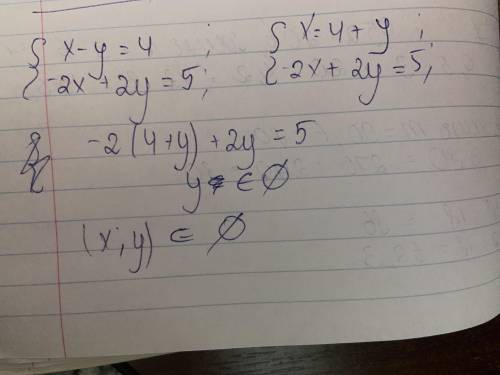 { x-y=4 ; { x=4+y ;
{ -2x+2y=5; { -2x+2y=5;
{ -2(4+y)+2y=5
y ∈ ∅
(x; y) ∈ ∅